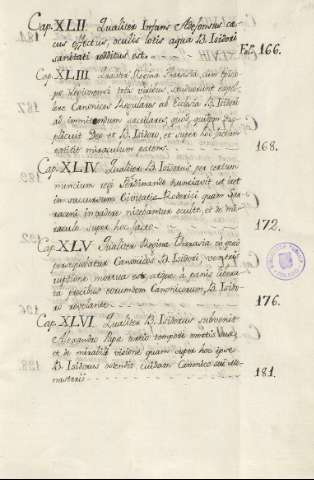 Cap. XLII Qualiter Infans Alefonsus cæ
cus effectus, oculis lotis aqua B. Isidori
sanitati redditus est. Fol. 166.
Cap. XLIII Qualiter Regina Tarasia, cum
Legionensi tota civitas, voluerunt expel
lere Canonicos Regulares ab Ecclesia B. Isidori
ad committendum sæculares, quod quidem dis
plicuit Deo et B. Isidoro, et super hoc factum
extitit miraculum patens. 168.
Cap. XLIV Qualiter B. Isidorus per certum
nuncium regi Ferdinando nunciavit ut iret
in succursum Civitatis Roderici quam Sar
raceni invadere nitebantur occulte, et de mi
raculo super hoc facto. 172.
Cap. XLV Qualiter Regina Tharasia
persequebatur Canonicos B. Isidori,
ruptione mortua est, atque à pœnis libera
ta precibus eorumdem Canonicorum, B. Isido
ro revelante. 176.
Cap. XLVI Qualiter B. Isidorus subvenit
Alexandro Papæ tertio tempore mortis suæ,
et de mirabili visione quam super hoc ipse
B. Isidorus ostendit cuidam Canonico sui Mo
nasterii. 181.